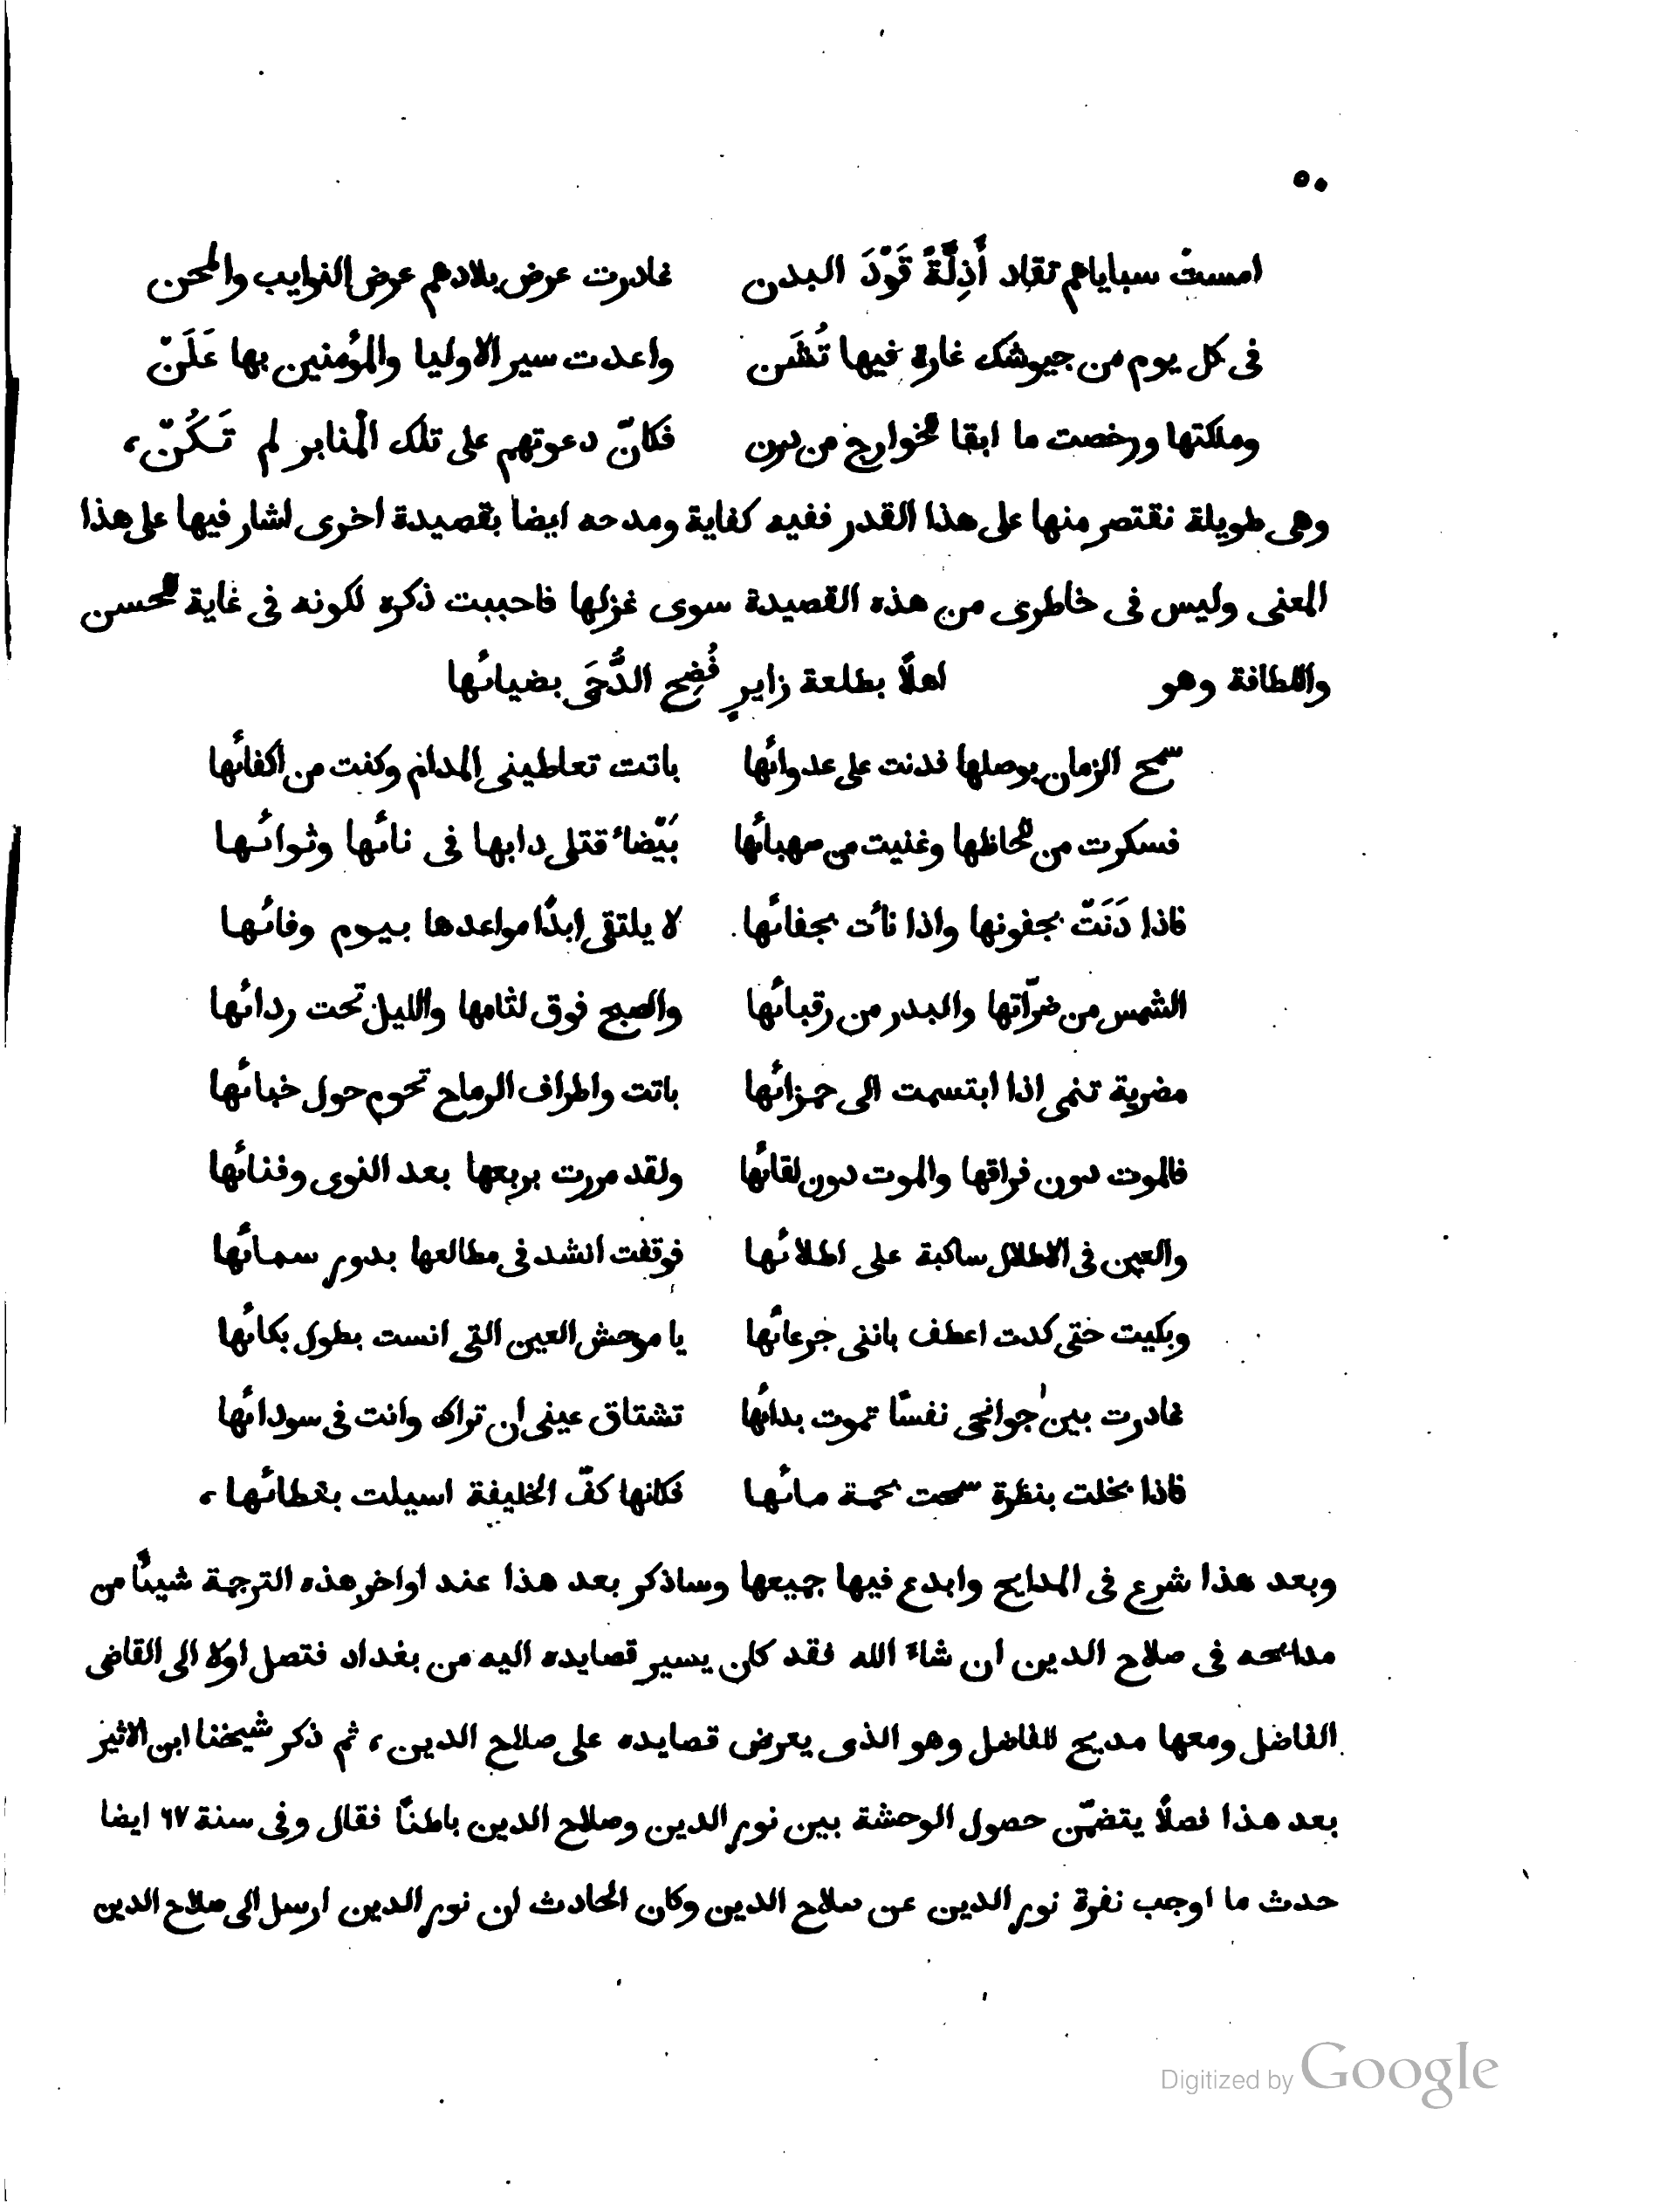 ٥٠
امست سباياهم تقاد أَذِلَّةً قَوْدَ البدن غادرت عرض بلادهم عرض النوايب والمحن
فى كل يوم من جيوشك غارة فيها تُشَن واعدت سير الاوليا والمؤمنين بها عَلَنْ
وملكتها ورخصت ما ابقا الخوارج من درن فكانّ دعوتهم على تلك المنابر لم تَكُنْ،
وهى طويلة نقتصر منها على هذا القدر ففيه كفاية ومدحه ايضا بقصيدة اخرى اشار فيها على هذا
المعنى وليس فى خاطرى من هذه القصيدة سوى غزلها فاحببت ذكره لكونه فى غاية الحسن
واللطافة وهو اهلًا بطلعة زايرٍ فُضِح الدُّجَى بضيائها
سمح الزمان بوصلها فدنت على عدوائها باتت تعاطينى المدام وكنت من اكفائها
فسكرت من الحاظها وغنيت من صهبائها بَيْضاء قتلى دابها فى نائها وثوائها
فاذا دَنَتْ بجفونها واذا نأت بجفائها لا يلتقى ابدًا مواعدها بيوم وفائها
الشمس من ضرّاتها والبدر من رقبائها والصبح فوق لثامها والليل تحت ردائها
مضرية تنمى اذا ابتسمت الى حمزائها باتت واطراف الرماح تحوم حول خبائها
فالموت دون فراقها والموت دون لقائها ولقد مررت بربعها بعد النوى وفنائها
والعين فى الاطلال ساكبة على اطلائها فوقفت انشد فى مطالعها بدور سمائها
وبكيت حتى كدت اعطف بانتى جرعائها يا موحش العين التى انست بطول بكائها
غادرت بين جوانحى نفسًا تموت بدائها تشتاق عينى ان تراك وانت فى سودائها
فاذا بخلت بنظرة سمحت بجمة مائها فكانها كفّ الخليفة اسيلت بغطائها،
وبعد هذا شرع فى المدايح وابدع فيها جميعها وساذكر بعد هذا عند اواخر هذه الترجمة شيئًا من
مدائحه فى صلاح الدين ان شاء الله فقد كان يسير قصايده اليه من بغداد فتصل اولا الى القاضى
الفاضل ومعها مديح للفاضل وهو الذى يعرض قصايده على صلاح الدين، ثم ذكر شيخنا ابن الاثير
بعد هذا فصلًا يتضمّن حصول الوحشة بين نور الدين وصلاح الدين باطنًا فقال وفى سنة ٦٧ ايضا
حدث ما اوجب نفرة نور الدين عن صلاح الدين وكان الحادث ان نور الدين ارسل الى صلاح الدين
Digitized by Google